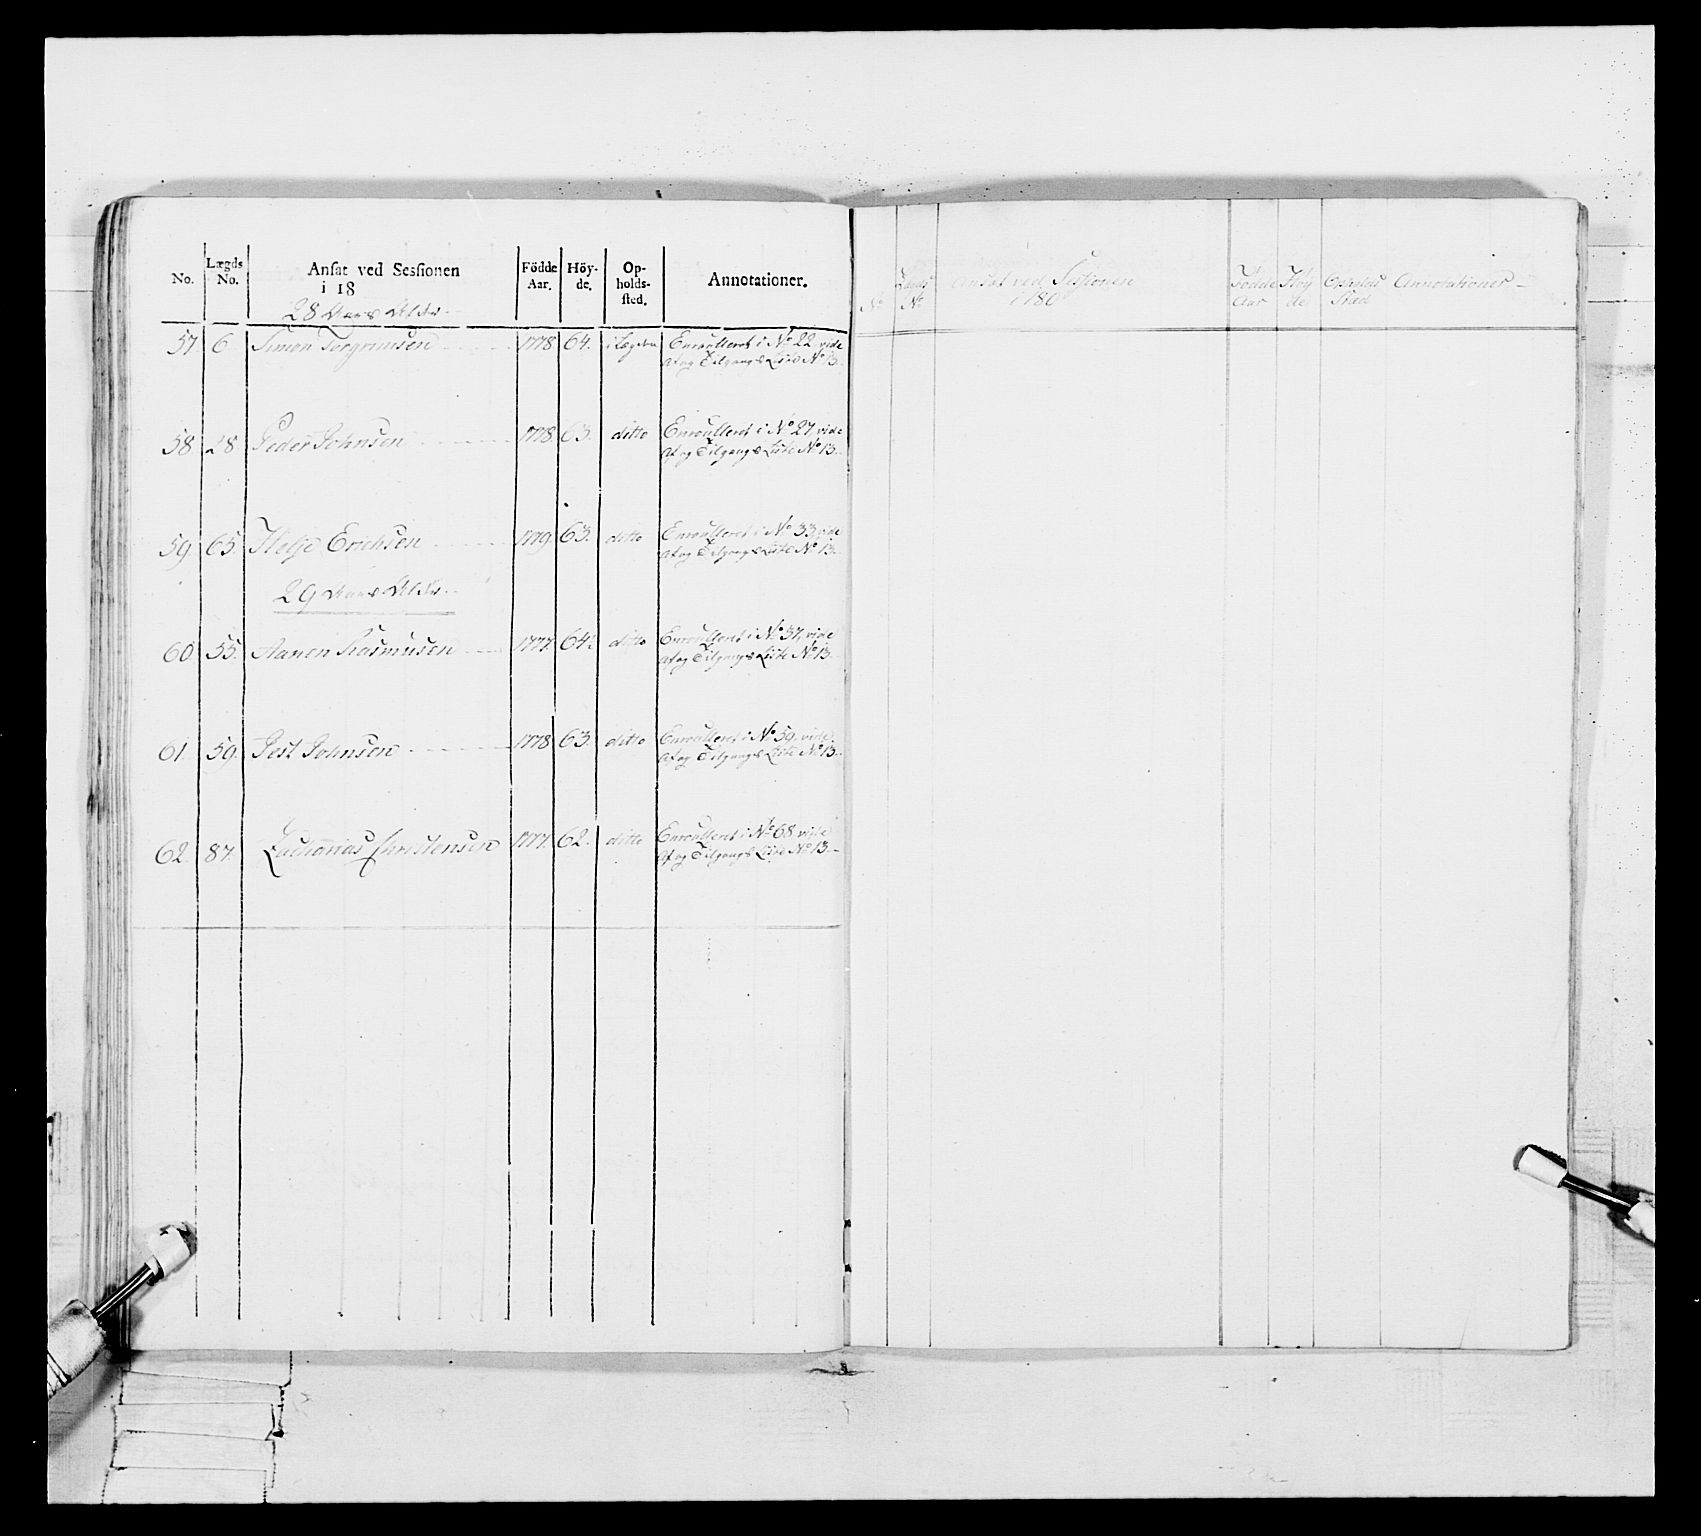 No. Lægds No. Ansat ved Sessionen i 18 Födde Aar. Höy-de. Op-holds-sted. Annotationer.
28 Aars Alder
57 6 Simon Torgrimsen 1778 64. i Lægden Enroulleret i No 22 vide
Af og Tilgangs Liste No 13.
58 28 Peder Johnsen 1778 63. ditto Enroulleret i No 27 vide
Af og Tilgangs Liste No 13.
59. 65. Helje Erichsen 1779 63. ditto Enroulleret i No 33, vide
Af og Tilgangs Liste No 13.
29 Aars Alder
60. 55. Aanen Rasmusen 1777. 64. ditto Enroulleret i No 37, vide
Af og Tilgangs Liste No 13.
61. 59. Jest Johnsen 1778 63. ditto Enroulleret i No 59. vide
Af og Tilgangs Liste No 13.
62. 87. Zacharias Christensen 1777. 62. ditto Enroulleret i No 68 vide
Af og Tilgangs Liste No 13.
No Lægds No Ansat ved Sessionen i 180 Fødde Aar Høyde Opholds Sted Annotationer